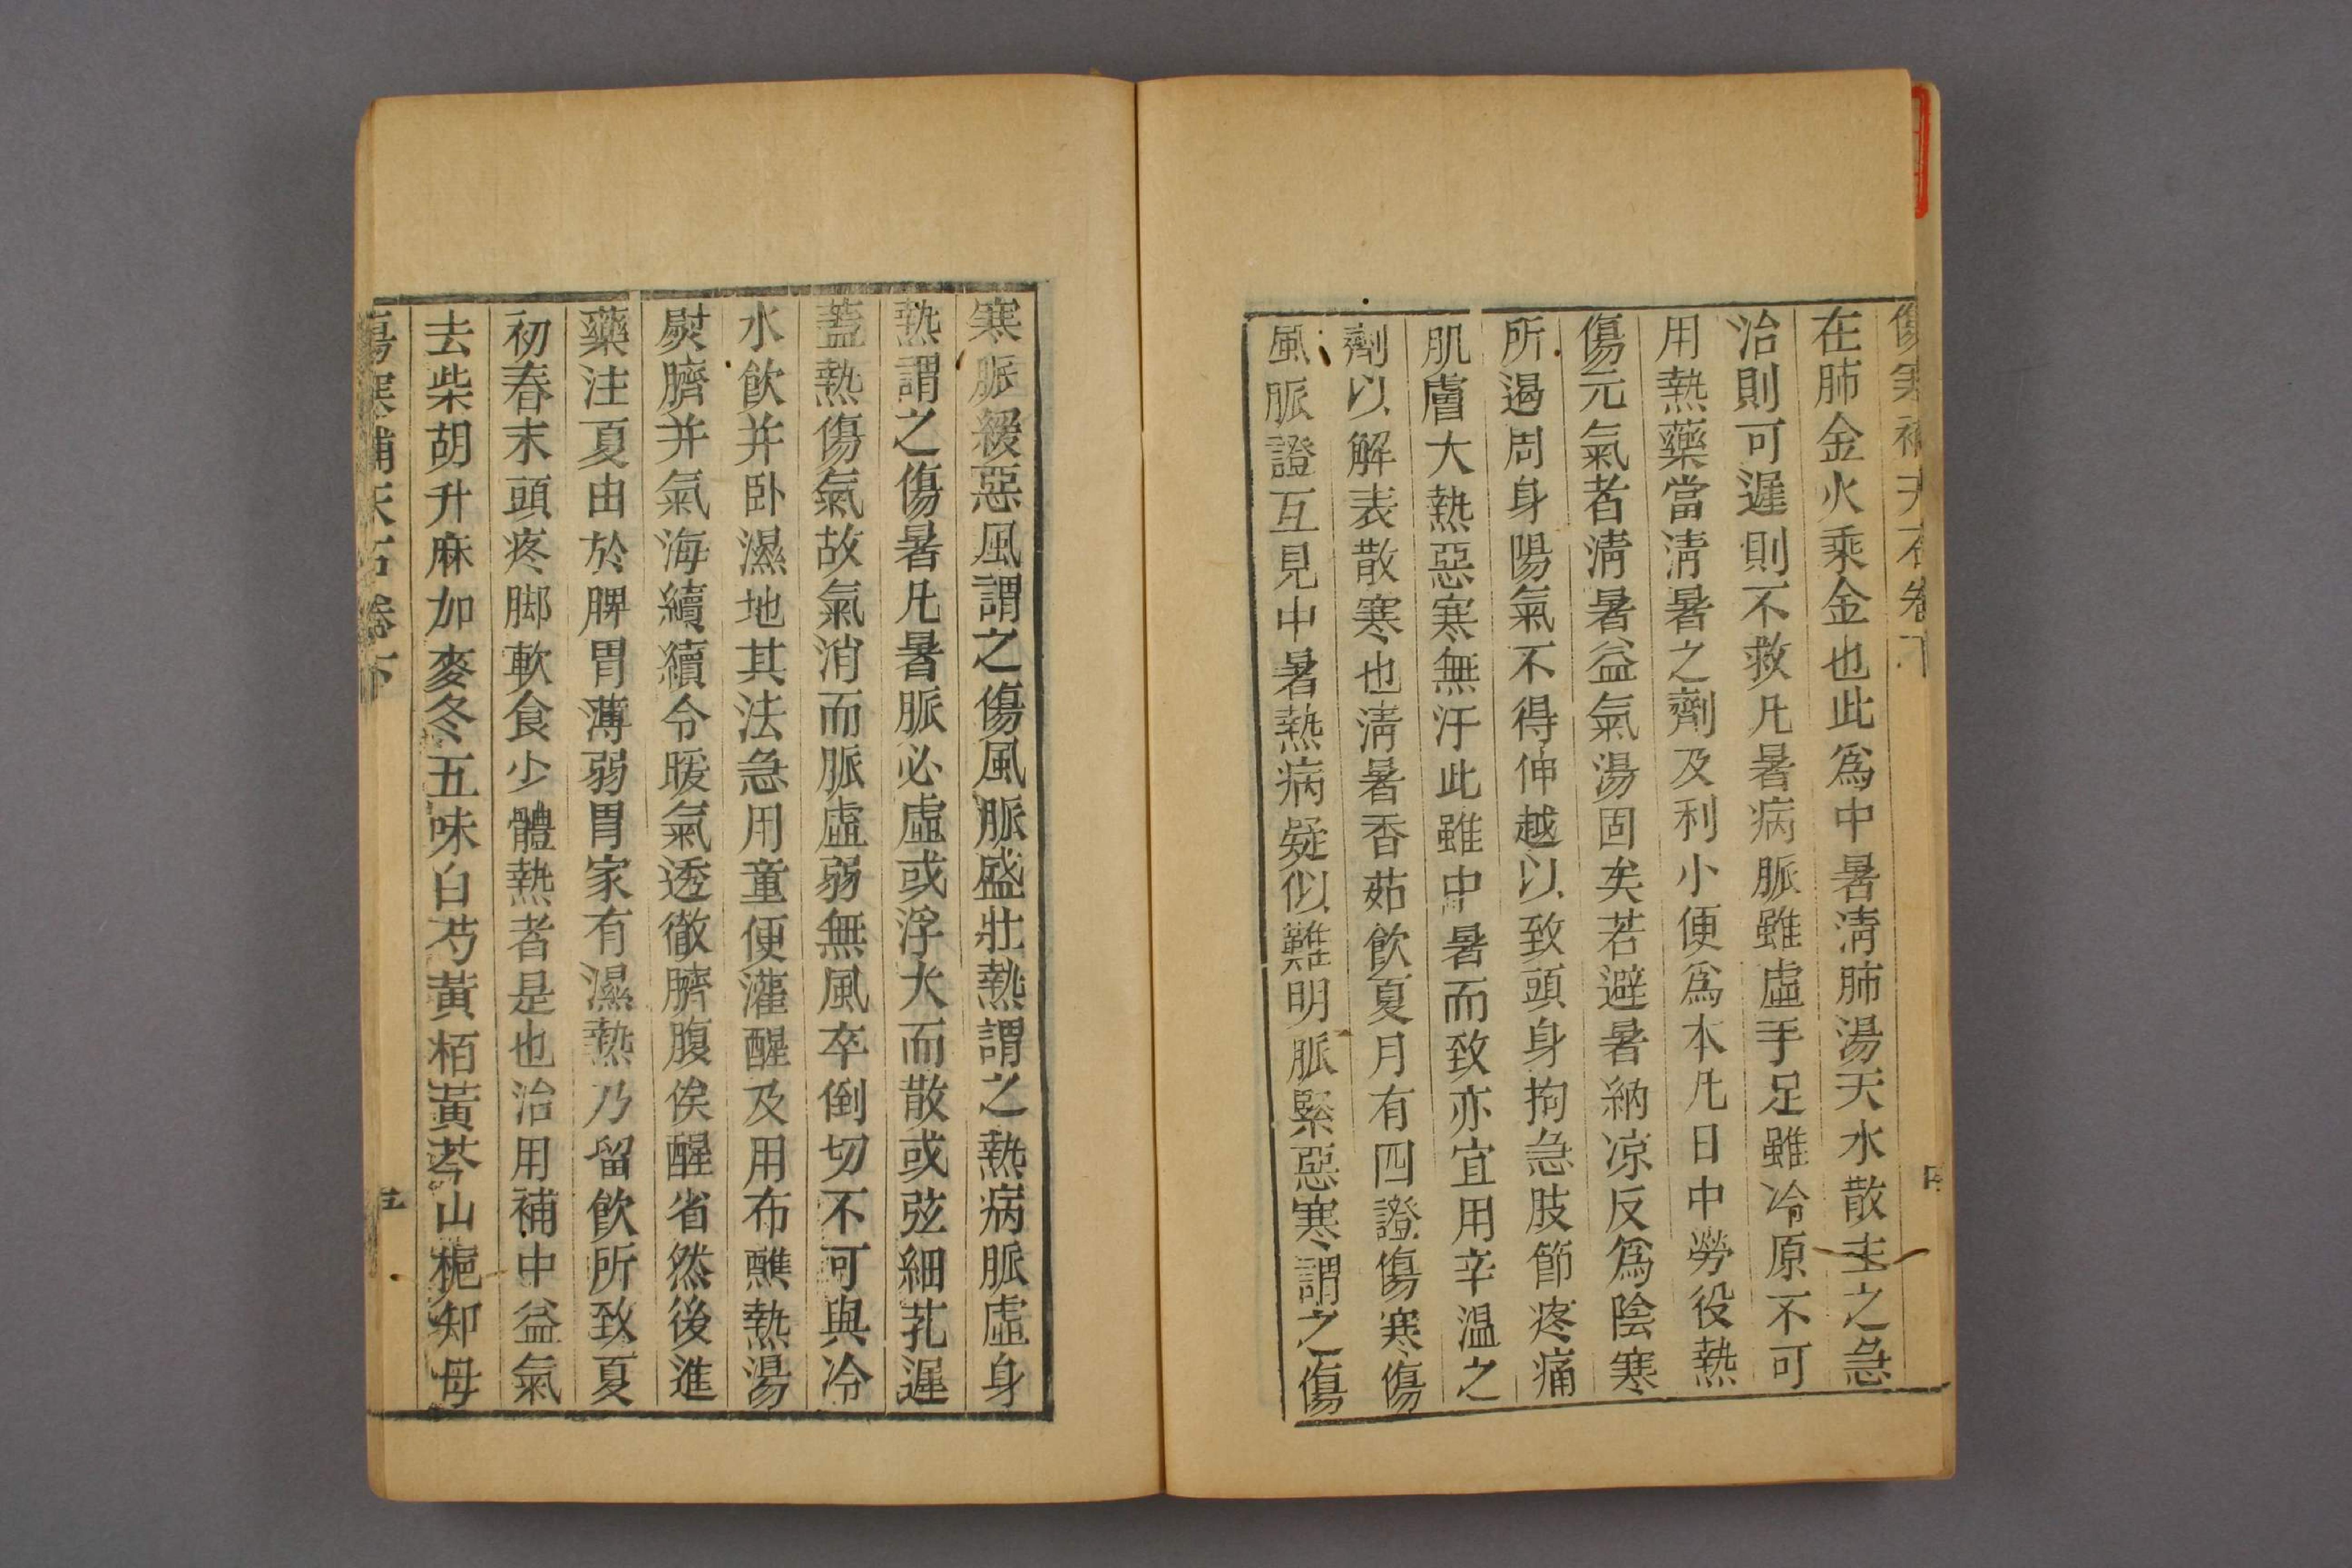 傷寒補天石卷下
四
在肺金火乘金也此爲中暑淸肺湯天水散主之急
治則可遲則不救凡暑病脈雖虛手足雖冷原不可
用熱藥當淸暑之劑及利小便爲本凡日中勞役熱
傷元氣者淸暑益氣湯固矣若避暑納凉反爲陰寒
所遏周身陽氣不得伸越以致頭身拘急肢節疼痛
肌膚大熱惡寒無汗此雖中暑而致亦宜用辛温之
劑以解表散寒也淸暑香茹飮夏月有四證傷寒傷
風脈證互見中暑熱病疑似難明脈緊惡寒謂之傷
寒脈緩惡風謂之傷風脈盛壯熱謂之熱病脈虛身
熱謂之傷暑凡暑脈必虛或浮大而散或弦細芤遲
蓋熱傷氣故氣消而脈虛弱無風卒倒切不可與冷
水飮并卧濕地其法急用童便灌醒及用布蘸熱湯
熨臍并氣海續續令暖氣透徹臍腹俟醒省然後進
藥注夏由於脾胃薄弱胃家有濕熱乃留飮所致夏
初春末頭疼脚軟食少體熱者是也治用補中益氣
去柴胡升麻加麥冬五味白芍黃栢黃芩山梔知母
傷寒補天石卷下
五